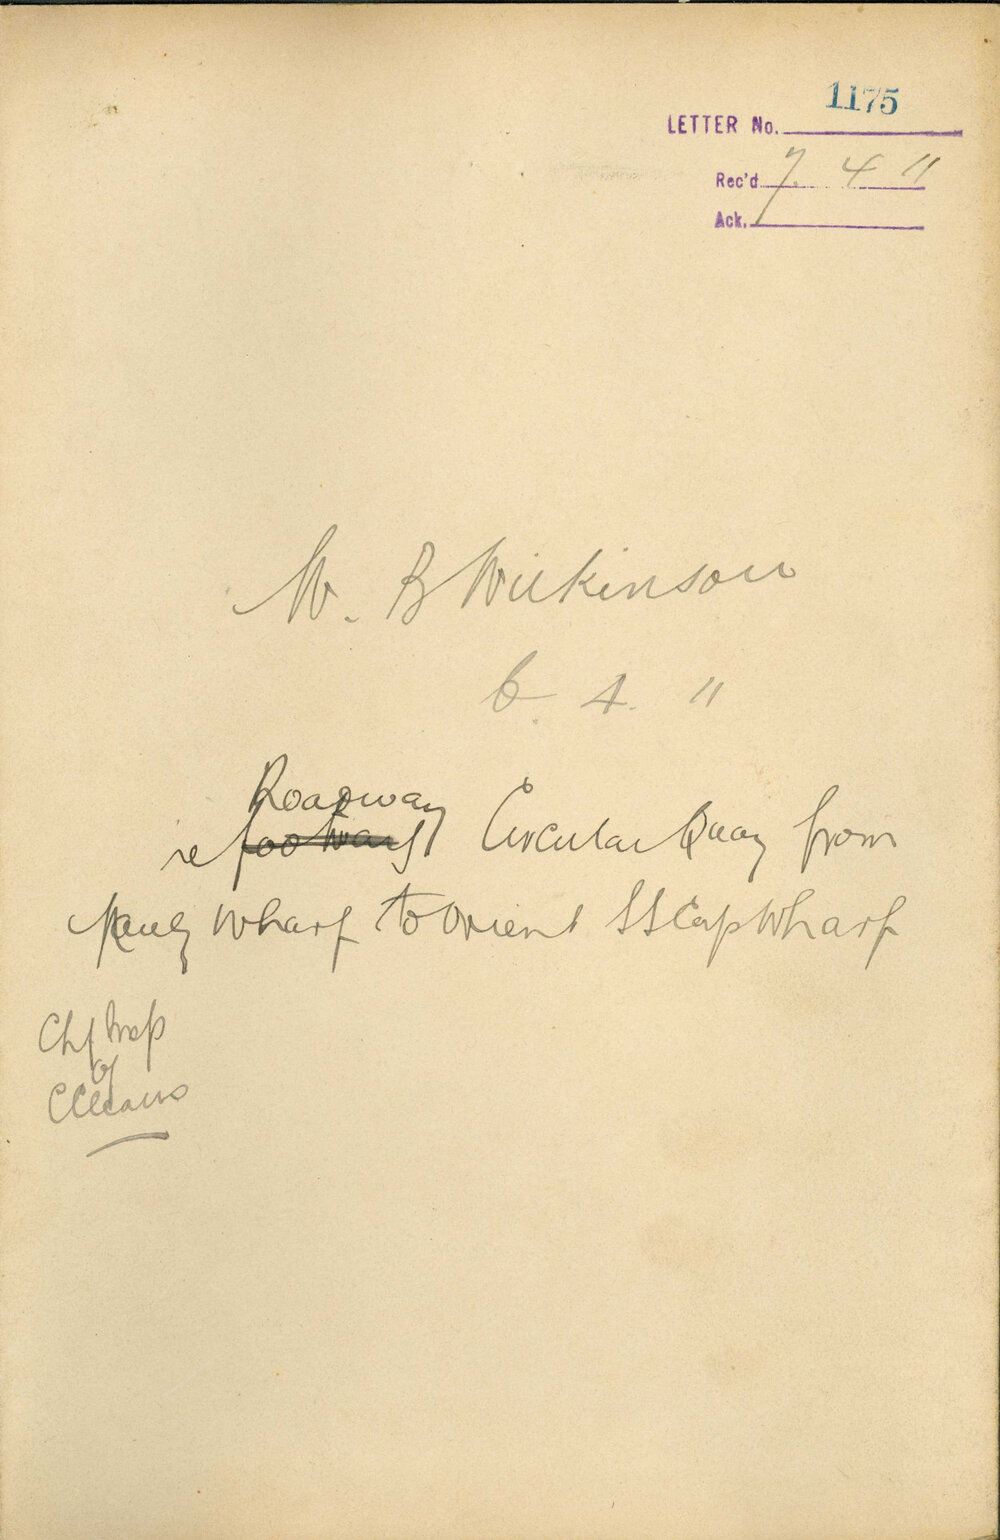 1175
LETTER No.
Rec'd 7. 4 11
Ack.
W. B Wilkinson
6. 4. 11
Roadway
re footway Circular Quay from
Manly Wharf to Orient SS Cop Wharf
Chf Insp
of
CCleans